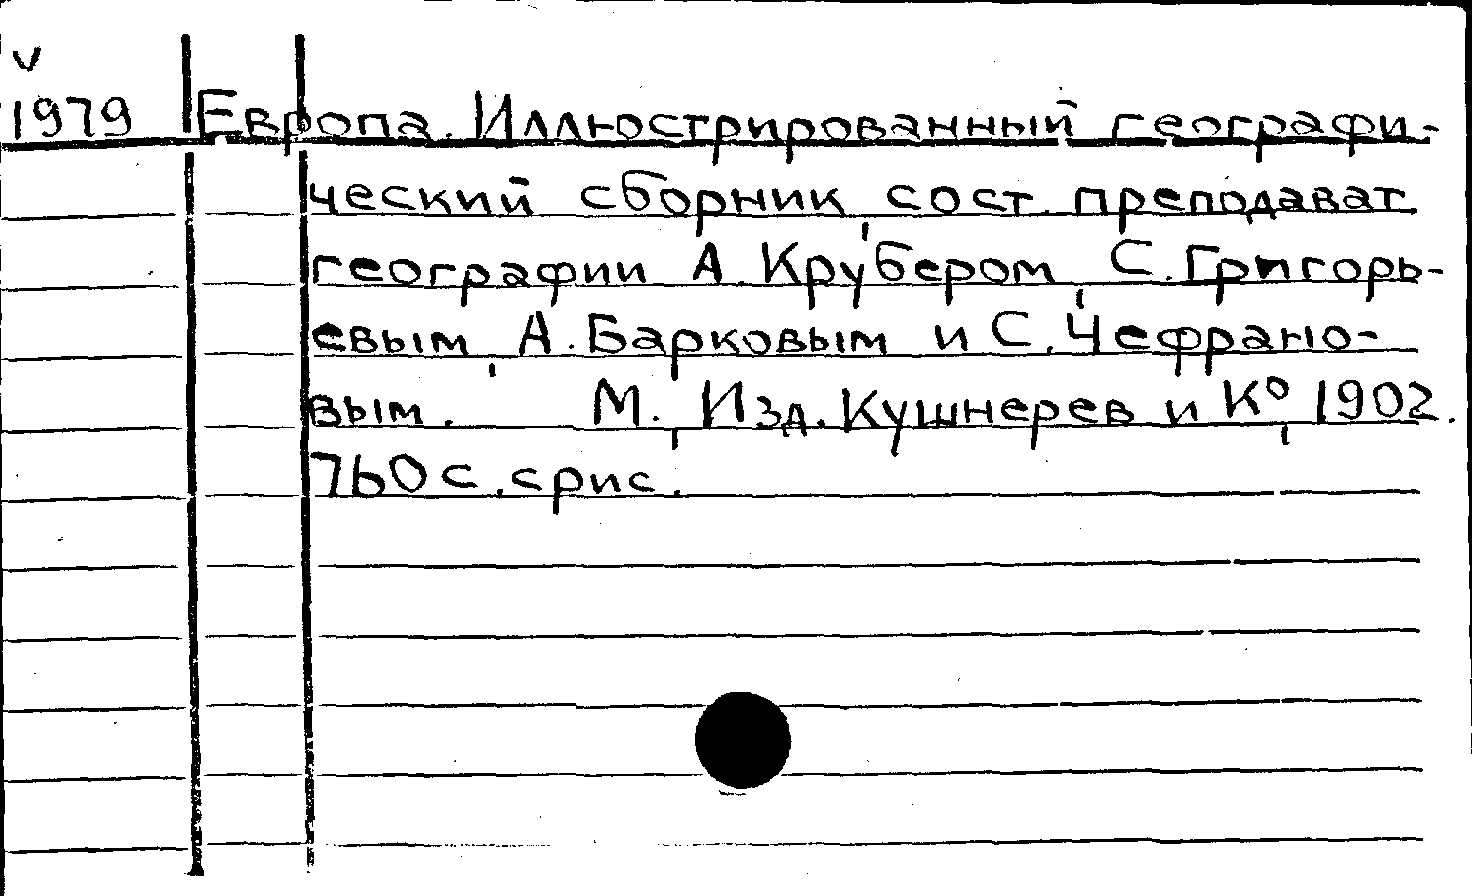 V
1979 Европа. Иллюстрированный географи-
ческий сборник, сост. преподават.
географии А. Крубером, С. Григорь-
евым, А. Барковым и С. Чефрано-
вым. М., Изд. Кушнерев и К°, 1902.
760 с. с рис.